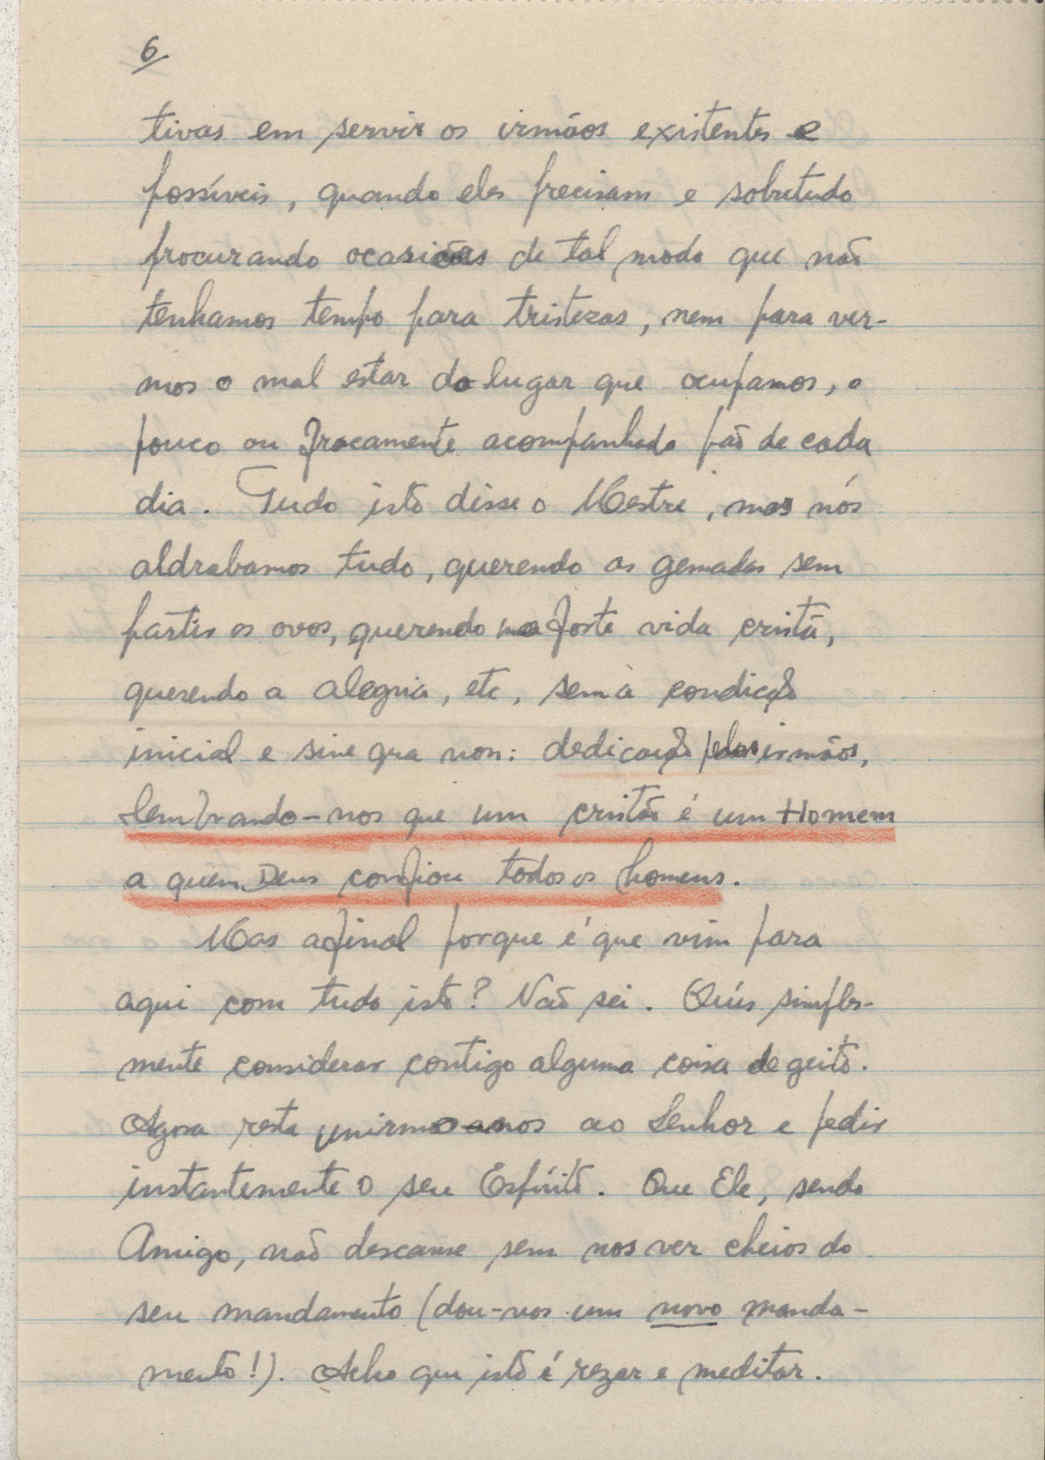 6
tivas em servir os irmãos existentes e
possíveis, quando eles precisam e sobretudo
procurando ocasiões de tal modo que não
tenhamos tempo para tristezas, nem para ver-
mos o mal estar do lugar que ocupamos, o
pouco ou fracamente acompanhado pão de cada
dia. Tudo isto disse o Mestre, mas nós
aldrabamos tudo, querendo as gemadas sem
partir os ovos, querendo forte vida cristã,
querendo a alegria, etc, sem a condição
inicial e sine qua non: dedicação pelos irmãos,
lembrando-nos que um cristão é um Homem
a quem Deus confiou todos os homens.
Mas afinal porque é que vim para
aqui com tudo isto? Não sei. Quis simples-
mente considerar contigo alguma coisa de geito.
Agora resta unirmo-nos ao Senhor e pedir
instantemente o seu Espírito. Que Ele, sendo
Amigo, não descanse sem nos ver cheios do
seu mandamento (dou-vos um novo manda-
mento!). Acho que isto é rezar e meditar.